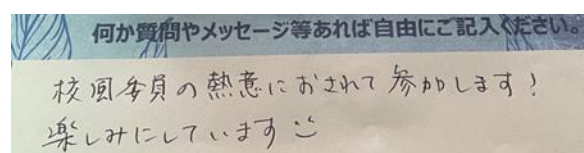 何か質問やメッセージ等あれば自由にご記入ください。
校園委員の熱意におされて参加します!
楽しみにしています